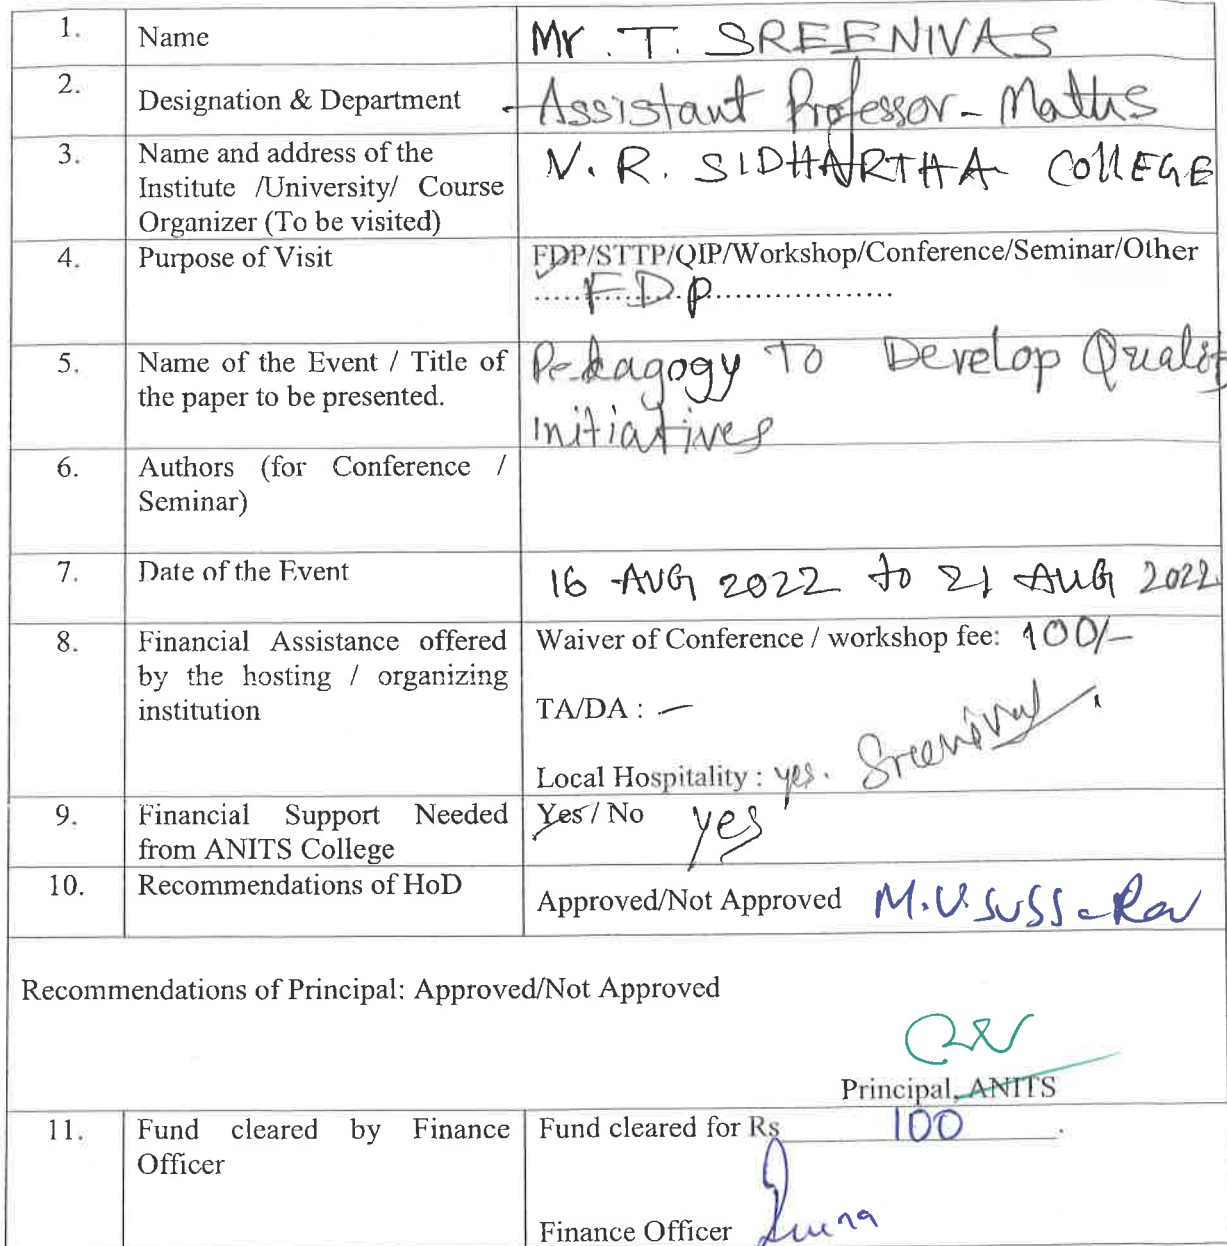 1. Name Mr. T. SREENIVAS
2. Designation & Department Assistant Professor - Maths
3. Name and address of the Institute /University/ Course Organizer (To be visited) V. R. SIDHARTHA COllEGE
4. Purpose of Visit FDP/STTP/QIP/Workshop/Conference/Seminar/Other
.....FDP....................
5. Name of the Event / Title of the paper to be presented. Pedagogy To Develop Quality
Initiatives
6. Authors (for Conference / Seminar)
7. Date of the Event 16 AUG 2022 to 21 AUG 2022
8. Financial Assistance offered by the hosting / organizing institution
Waiver of Conference / workshop fee: 100/-
TA/DA : —
Local Hospitality : yes. Sreenivas
9. Financial Support Needed from ANITS College Yes / No yes
10. Recommendations of HoD Approved/Not Approved
Recommendations of Principal: Approved/Not Approved
Principal, ANITS
11. Fund cleared by Finance Officer Fund cleared for Rs 100.
Finance Officer